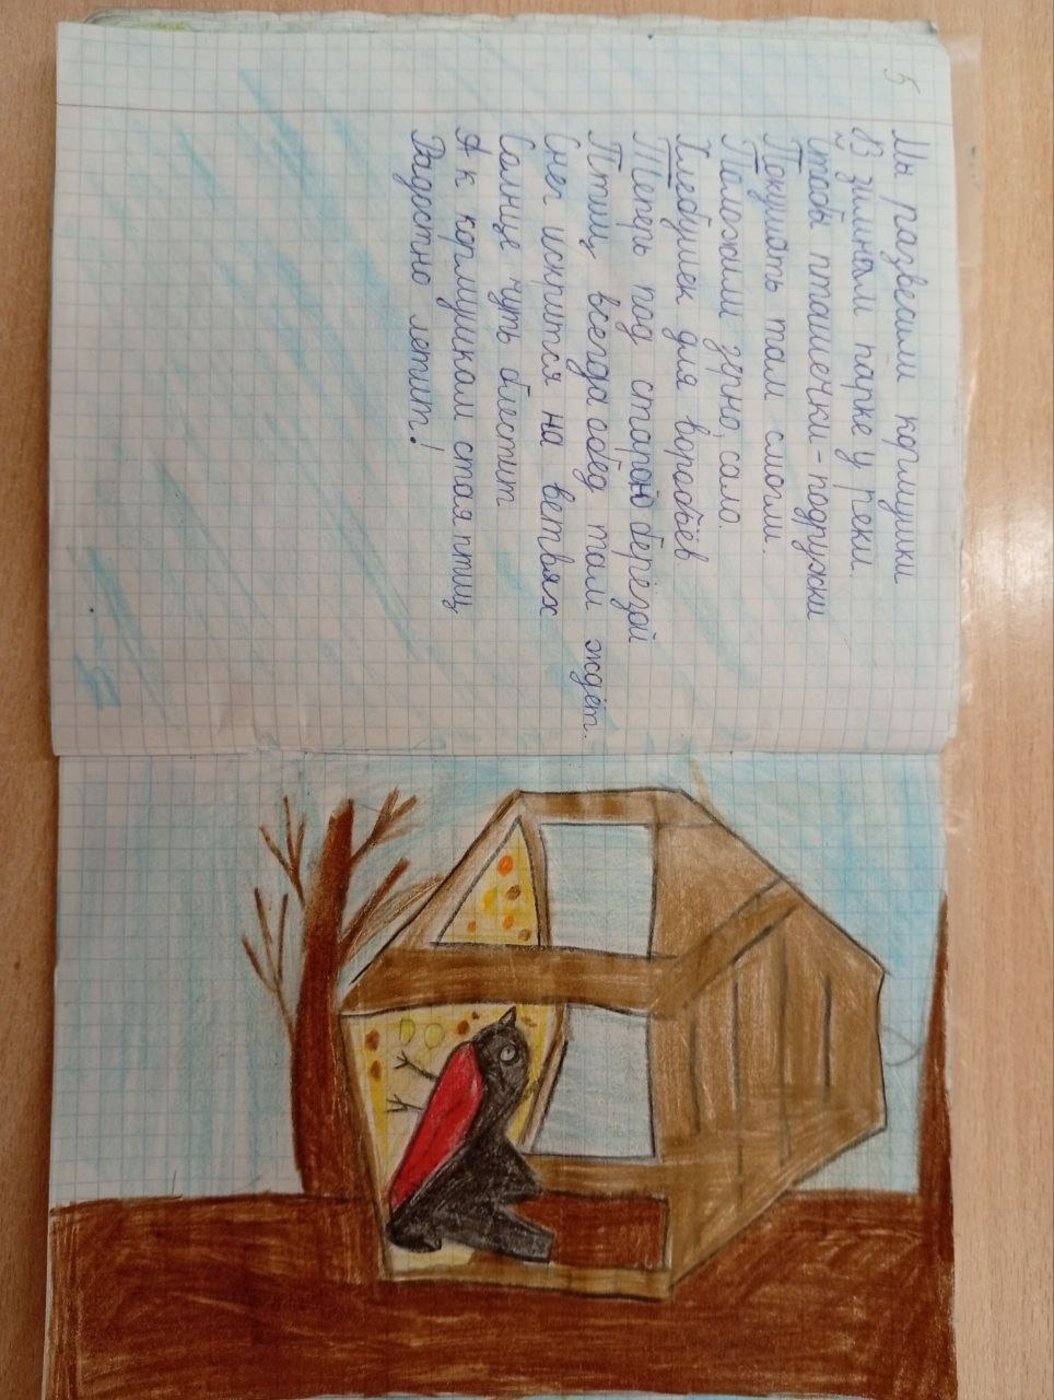 5
Мы развесили кормушки
В зимнам парке у реки.
Чтобы пташечки-подружки
Покушать там смогли.
Паложим зерно, сало.
Хлебушек для воробьёв
Теперь под старою берёзой
Птиц всегда обед там ждёт.
Снег искрится на ветвях
Солнце чуть блестит
А к кормушкам стая птиц
Радостно летит!